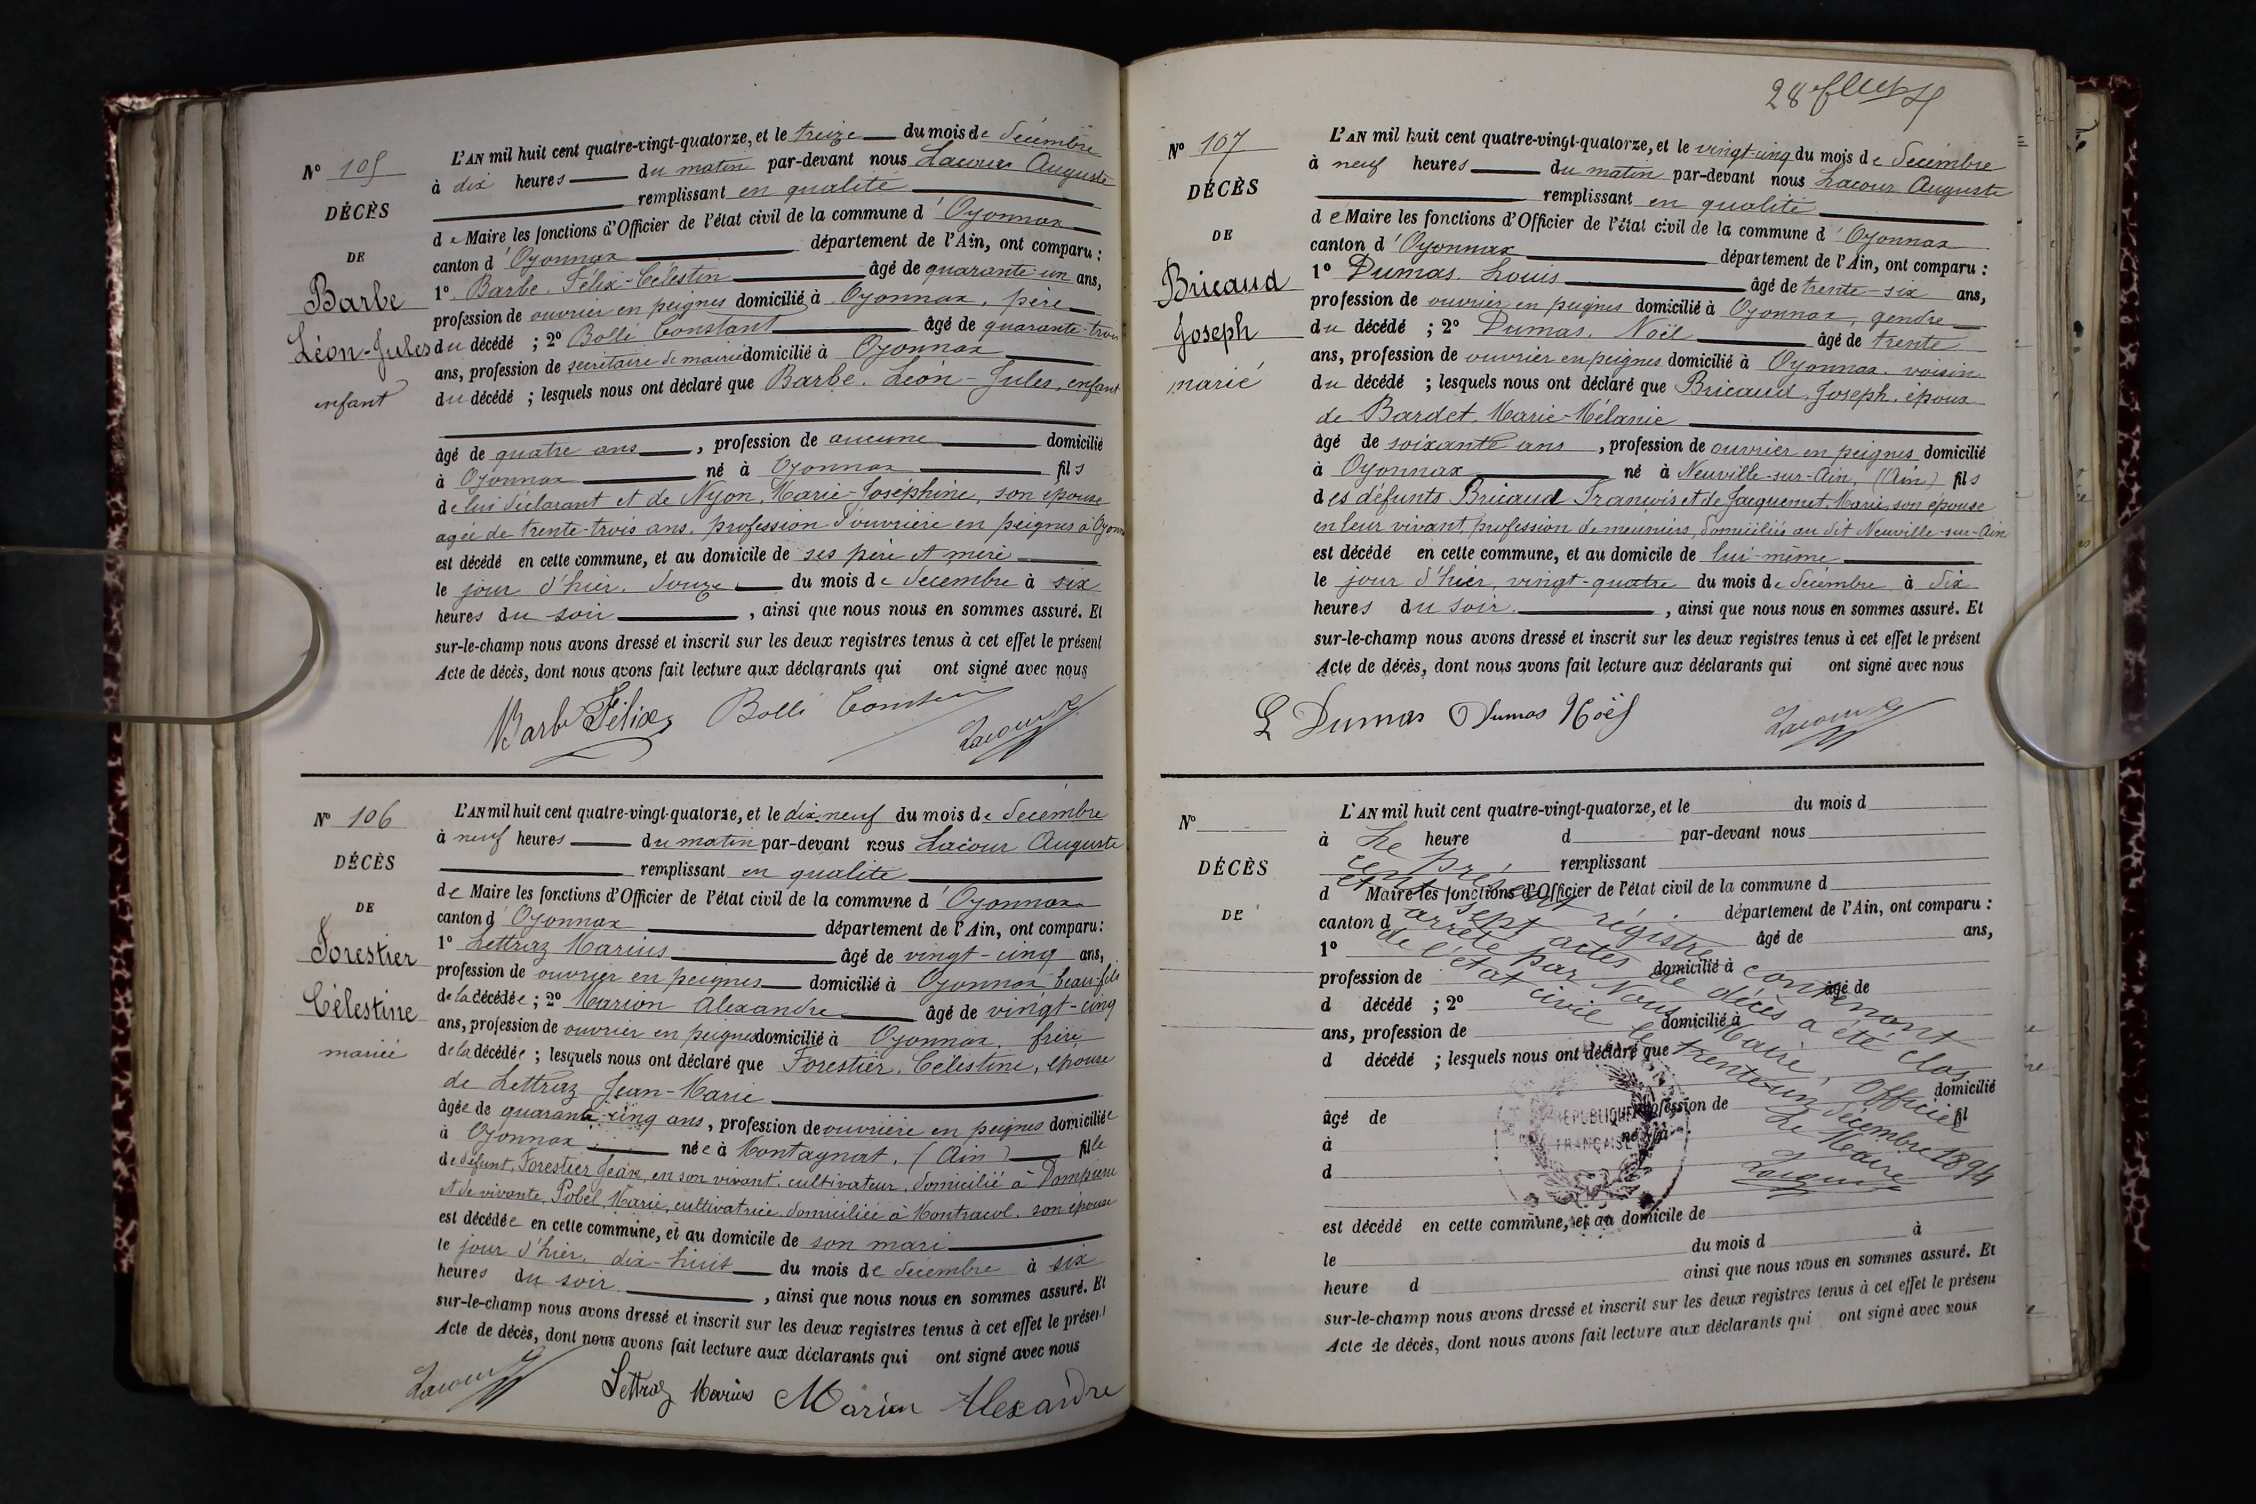 N° 105
DÉCÈS
DE
Barbe
Léon-Jules
enfant
L'AN mil huit cent quatre-vingt-quatorze, et le treize du mois de décembre
à dix heures du matin par-devant nous Lacour Auguste
remplissant en qualité
de Maire les fonctions d'Officier de l'état civil de la commune d'Oyonnax
canton d'Oyonnax département de l'Ain, ont comparu :
1° Barbe, Félix-Célestin âgé de quarante-un ans,
profession de ouvrier en peignes domicilié à Oyonnax, père
du décédé ; 2° Bolli Constant âgé de quarante-trois
ans, profession de secrétaire de mairie domicilié à Oyonnax
du décédé ; lesquels nous ont déclaré que Barbe, Léon-Jules, enfant
âgé de quatre ans, profession de aucune domicilié
à Oyonnax né à Oyonnax fils
de lui déclarant et de Nyon, Marie-Joséphine, son épouse
agée de trente-trois ans, profession d'ouvrière en peignes à Oyonnax
est décédé en cette commune, et au domicile de ses père et mère
le jour d'hier, douze du mois de décembre à six
heures du soir, ainsi que nous nous en sommes assuré. Et
sur-le-champ nous avons dressé et inscrit sur les deux registres tenus à cet effet le présent
Acte de décès, dont nous avons fait lecture aux déclarants qui ont signé avec nous
Barbe Félix Bolli Constant
Lacour
N° 106
DÉCÈS
DE
Forestier
Célestine
mariée
L'AN mil huit cent quatre-vingt-quatorze, et le dix-neuf du mois de décembre
à neuf heures du matin par-devant nous Lacour Auguste
remplissant en qualité
de Maire les fonctions d'Officier de l'état civil de la commune d'Oyonnax
canton d'Oyonnax département de l'Ain, ont comparu :
1° Lettraz Marius âgé de vingt-cinq ans,
profession de ouvrier en peignes domicilié à Oyonnax beau-fils
de la décédée ; 2° Marion Alexandre âgé de vingt-cinq
ans, profession de ouvrier en peignes domicilié à Oyonnax, frère
de la décédée ; lesquels nous ont déclaré que Forestier, Célestine, épouse
de Lettraz Jean-Marie
âgée de quarante-cinq ans, profession de ouvrière en peignes domiciliée
à Oyonnax née à Montagnat, (Ain) fille
de défunt, Forestier Jean, en son vivant, cultivateur, domicilié à Dompierre
et de vivante, Pobel Marie, cultivatrice, domiciliée à Montracol, son épouse
est décédée en cette commune, et au domicile de son mari
le jour d'hier, dix-huit du mois de décembre à six
heures du soir, ainsi que nous nous en sommes assuré. Et
sur-le-champ nous avons dressé et inscrit sur les deux registres tenus à cet effet le présent
Acte de décès, dont nous avons fait lecture aux déclarants qui ont signé avec nous
Lacour Lettraz Marius Marion Alexandre
28
N° 107
DÉCÈS
DE
Bricaud
Joseph
marié
L'AN mil huit cent quatre-vingt-quatorze, et le vingt-cinq du mois de décembre
à neuf heures du matin par-devant nous Lacour Auguste
remplissant en qualité
de Maire les fonctions d'Officier de l'état civil de la commune d'Oyonnax
canton d'Oyonnax département de l'Ain, ont comparu :
1° Dumas, Louis âgé de trente-six ans,
profession de ouvrier en peignes domicilié à Oyonnax, gendre
du décédé ; 2° Dumas, Noël âgé de trente
ans, profession de ouvrier en peignes domicilié à Oyonnax, voisin
du décédé ; lesquels nous ont déclaré que Bricaud, Joseph, époux
de Bardet, Marie-Mélanie
âgé de soixante ans, profession de ouvrier en peignes domicilié
à Oyonnax né à Neuville-sur-Ain, (Ain) fils
des défunts Bricaud François et de Jacquemet, Marie, son épouse
en leur vivant, profession de meuniers, domiciliés au dit Neuville-sur-Ain
est décédé en cette commune, et au domicile de lui-même
le jour d'hier, vingt-quatre du mois de décembre à dix
heures du soir, ainsi que nous nous en sommes assuré. Et
sur-le-champ nous avons dressé et inscrit sur les deux registres tenus à cet effet le présent
Acte de décès, dont nous avons fait lecture aux déclarants qui ont signé avec nous
L Dumas Dumas Noël
Lacour
N°
DÉCÈS
DE
L'AN mil huit cent quatre-vingt-quatorze, et le du mois d
à heure d par-devant nous
remplissant
d Maire les fonctions d'Officier de l'état civil de la commune d
canton d département de l'Ain, ont comparu :
1° âgé de ans,
profession de domicilié à
d décédé ; 2° âgé de
ans, profession de domicilié à
d décédé ; lesquels nous ont déclaré que
âgé de profession de domicilié
à né à fil
d
est décédé en cette commune, et au domicile de
le du mois d à
heure d ainsi que nous nous en sommes assuré. Et
sur-le-champ nous avons dressé et inscrit sur les deux registres tenus à cet effet le présent
Acte de décès, dont nous avons fait lecture aux déclarants qui ont signé avec nous
Le présent régistre contenant
cent sept actes de décès a été clos
et arrêté par Nous Maire, Officier
de l'état civil le trente-un décembre 1894
Le Maire
Lacour
RÉPUBLIQUE
FRANÇAISE